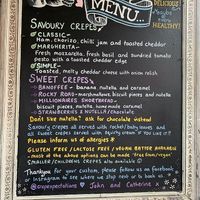 MENU
DELICIOUS
Maybe
HEALTHY!
SAVOURY CREPES
CLASSIC~
Ham, Chorizo, chilli jam and toasted cheddar
MARGHERITA~
Fresh mozzarella, fresh basil and sundried tomato
pesto with a toasted cheddar edge
SIMPLE~
Toasted, melty cheddar cheese with onion relish
SWEET CREPES
BANOFFEE - banana, nutella and caramel
ROCKY ROAD - marshmallows, biscuit pieces and nutella
MILLIONAIRES SHORTBREAD -
biscuit pieces, nutella, home made caramel
STRAWBERRIES & NUTELLA/CHOCOLATE
Don't like nutella? ask for chocolate instead!
Savoury crepes all served with rocket/baby leaves and
Please inform us of allergies
GLUTEN FREE / LACTOSE FREE / VEGAN BATTER AVAILABLE
- most of the above options can be made 'free from/vegan'
SMALLER/CHILDREN'S CREPES ALSO AVAILABLE
Thankyou for your custom, please follow us on facebook
or Instagram to see where we pop up next or to book us
John and Catherine x